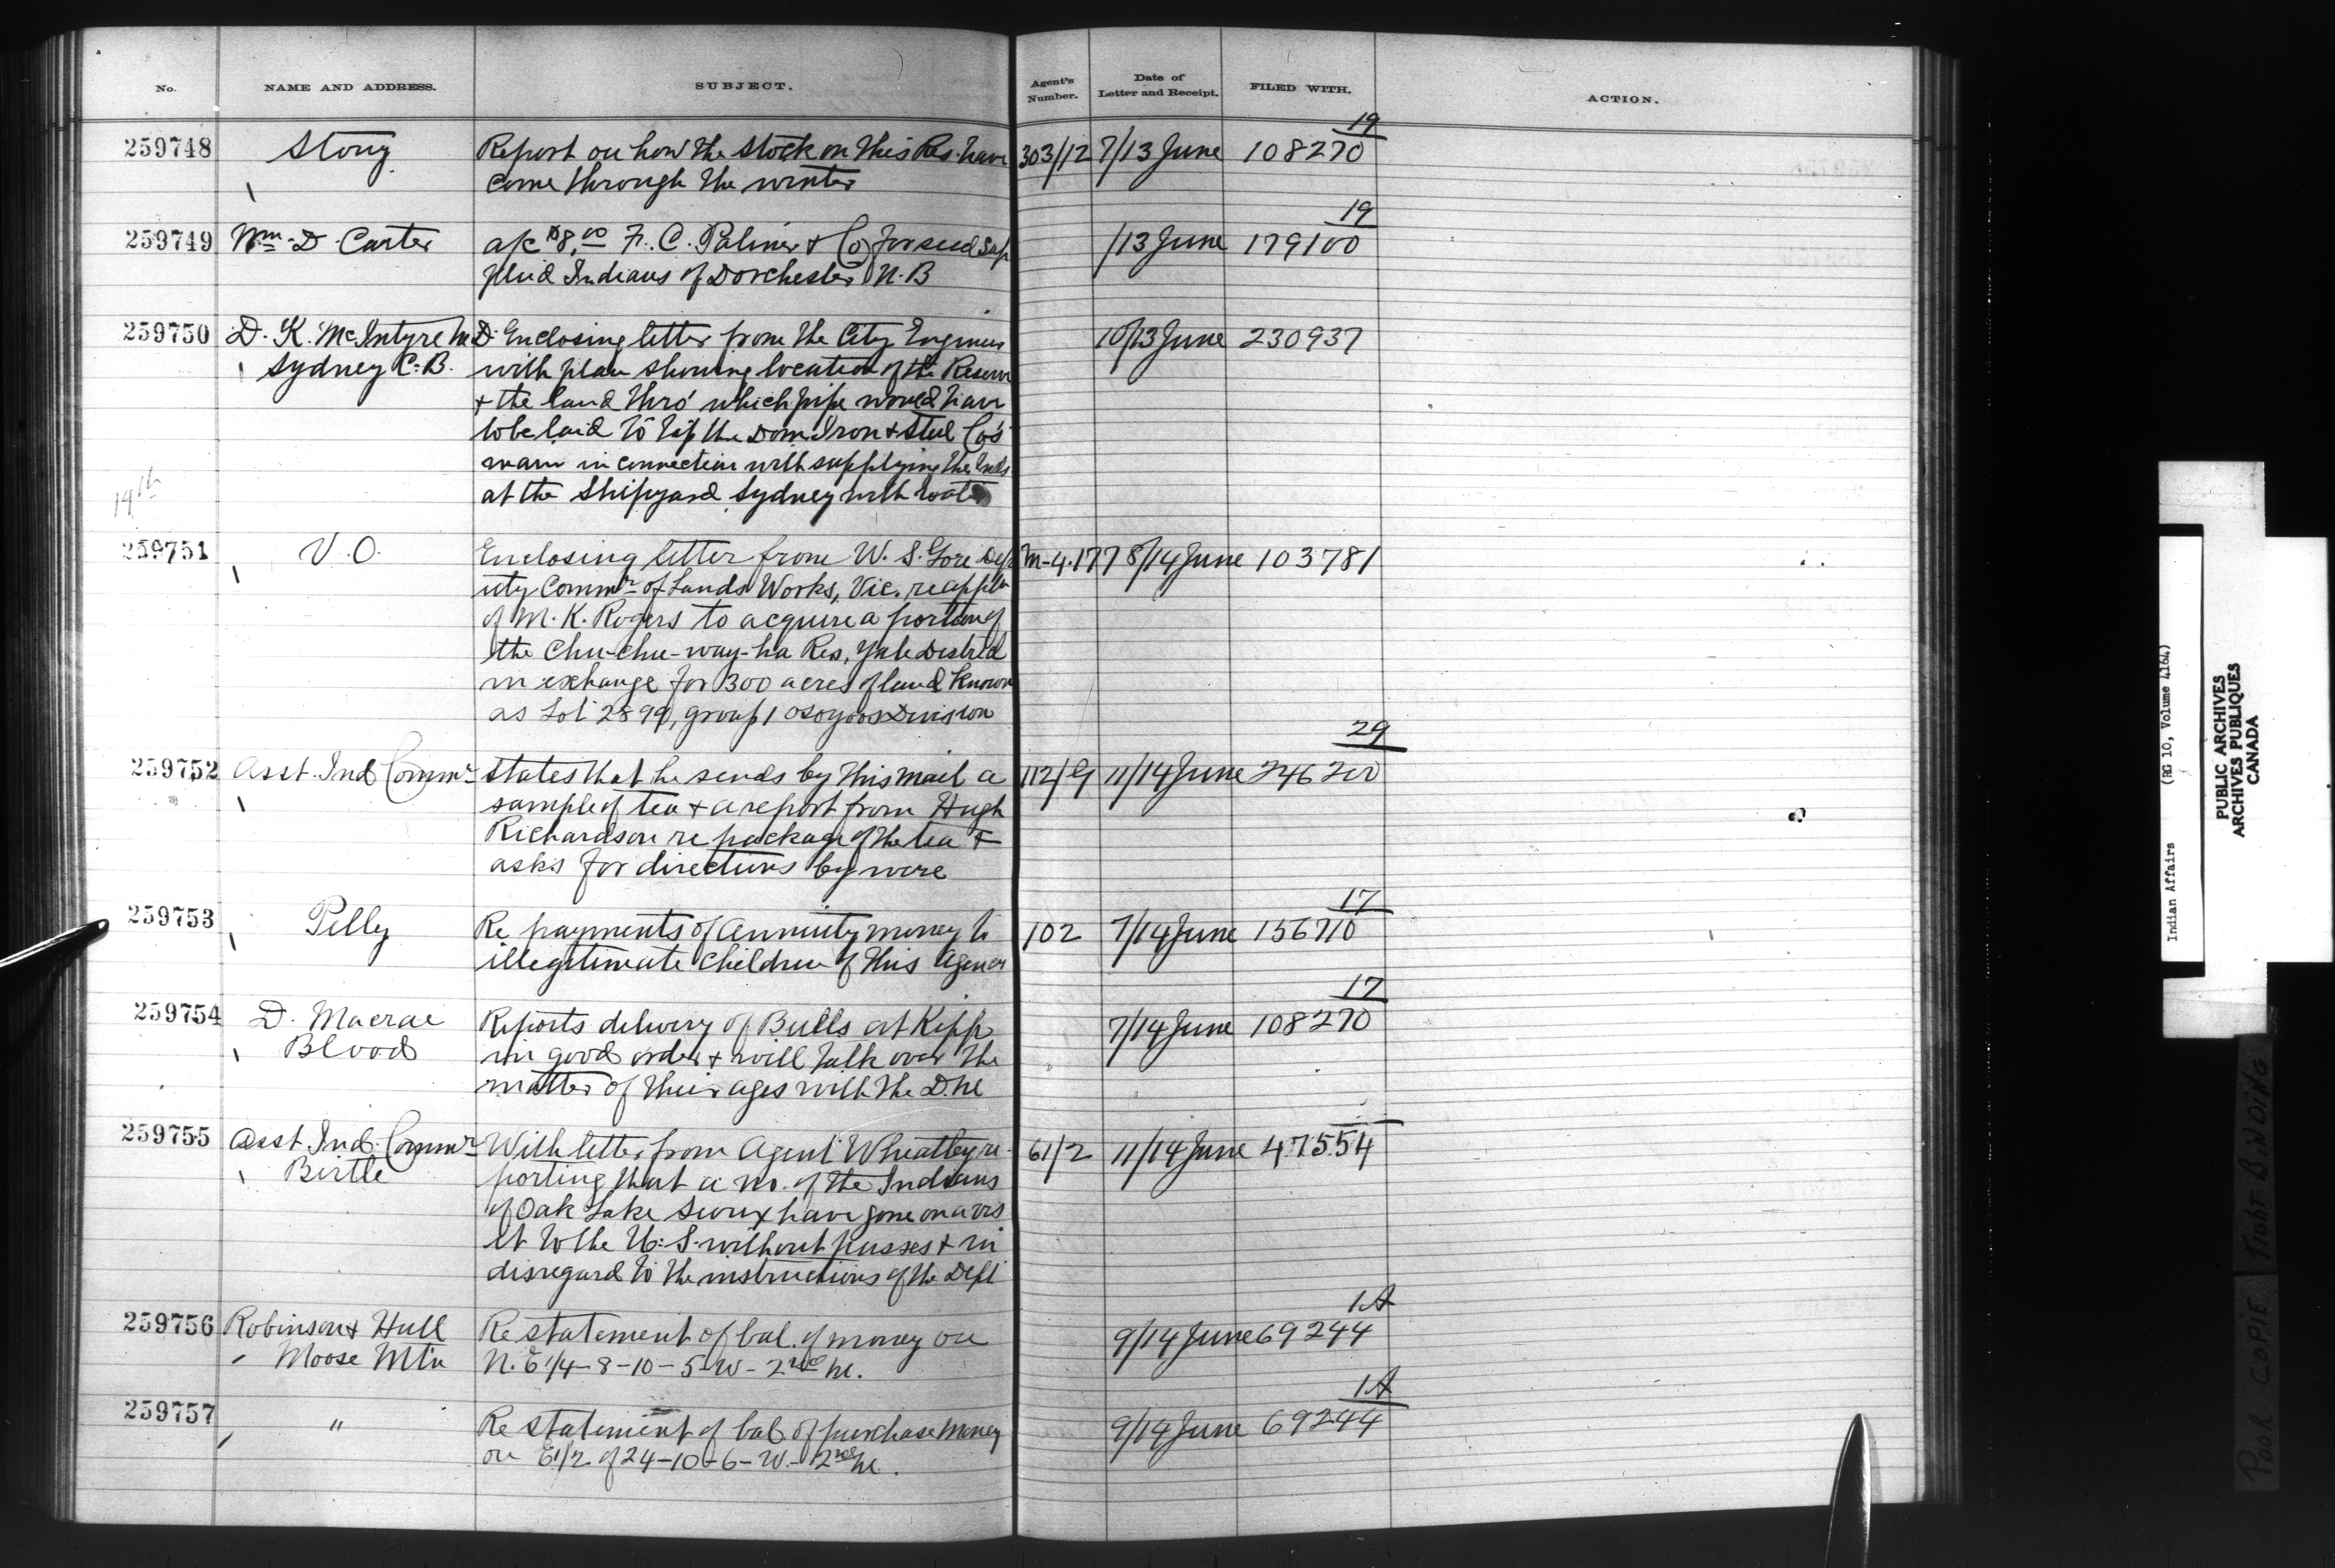 No. NAME AND ADDRESS. SUBJECT. Agent's Number. Date of Letter and Receipt. FILED WITH. ACTION.
19
259748 Stony Report on how the stock on this Res. have 303/12 7/13 June 108270
come through the winter
19
259749 Wm D. Carter a/c $8.00 F. C. Palmer & Co for seed sup /13 June 179100
plied Indians of Dorchester N.B
259750 D. K. McIntyre M.D. Enclosing letter from the City Engineer 10/13 June 230937
Sydney C.B. with plan showing location of the Reserve
& the land thro' which pipe would have
to be laid to tap the Dom. Iron & Steel Co's
main in connection with supplying the Inds.
at the Shipyard Sydney with water
19th
259751 V.O. Enclosing letter from W. S. Gore Dep M-4.177 8/14 June 103781
uty Commr of Lands Works, Vic. re appln
of M. K. Rogers to acquire a portion of
the Chu-chu-way-ha Res, Yale District
in exchange for 300 acres of land known
as Lot 2899, group 1 Osoyoos Division
29
259752 Asst. Ind Commr States that he sends by this mail a 112/G 11/14 June 246200
sample of tea & a report from Hugh
Richardson re package of the tea &
asks for directions by wire
17
259753 Pelly Re payments of annuity money to 102 7/14 June 156710
illegitimate children of this Agency
17
259754 D. Macrae Reports delivery of Bulls at Kipp 7/14 June 108270
Blood in good order & will talk over the
matter of their ages with the D.M
259755 Asst Ind. Commr With letter from Agent Wheatley re- 61/2 11/14 June 47554
Birtle porting that a no. of the Indians
of Oak Lake Sioux have gone on a vis
it to the U.S. without passes & in
disregard to the instructions of the Dept
1A
259756 Robinson & Hull Re statement of bal. of money on 9/14 June 69244
Moose Mtn N.E 1/4-8-10-5-W-2nd M.
1A
259757 " Re statement of bal. of purchase money 9/14 June 69244
on E1/2 of 24-10-6-W-2nd M.
Indian Affairs (RG 10, Volume 4164)
PUBLIC ARCHIVES
ARCHIVES PUBLIQUES
CANADA
POOR COPIE TIGHT BINDING